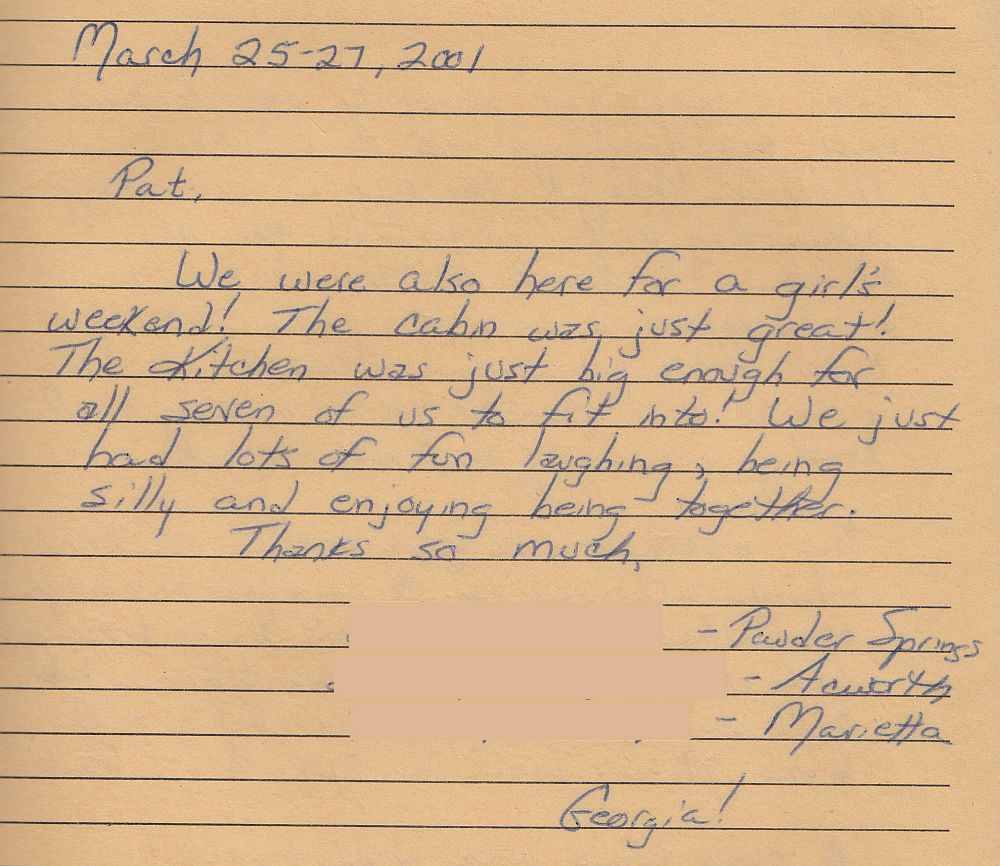 March 25-27, 2001
Pat,
We were also here for a girl's
weekend! The cabin was just great!
The Kitchen was just big enough for
all seven of us to fit into! We just
had lots of fun laughing, being
silly and enjoying being together.
Thanks so much,
- Powder Springs
- Acworth
- Marietta
Georgia!